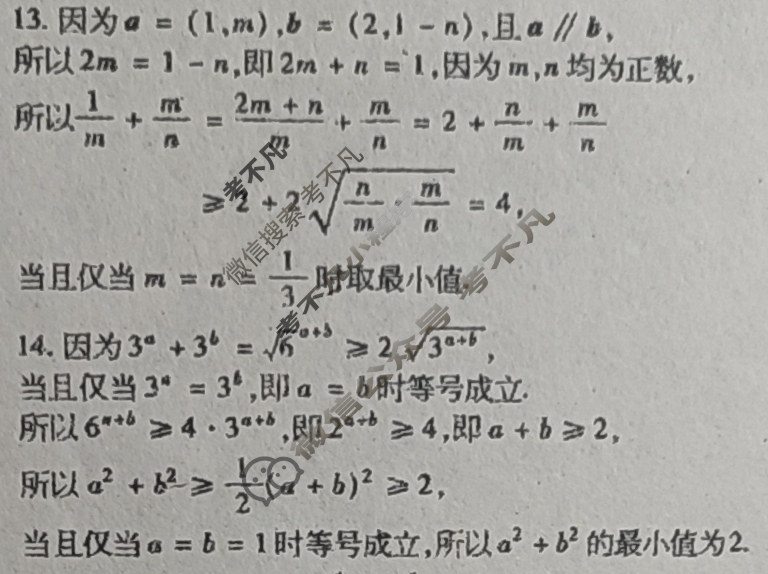 13. 因为 a = (1,m),b = (2,1 - n),且 a // b,
所以 2m = 1 - n,即 2m + n = 1,因为 m,n 均为正数,
所以 1/m + m/n = (2m + n)/m + m/n = 2 + n/m + m/n
≥ 2 + 2√(n/m · m/n) = 4,
当且仅当 m = n = 1/3 时取最小值.
14. 因为 3^a + 3^b = √6^(a+b) ≥ 2√(3^(a+b)),
当且仅当 3^a = 3^b,即 a = b 时等号成立.
所以 6^(a+b) ≥ 4 · 3^(a+b),即 2^(a+b) ≥ 4,即 a + b ≥ 2,
所以 a² + b² ≥ 1/2 (a + b)² ≥ 2,
当且仅当 a = b = 1 时等号成立,所以 a² + b² 的最小值为 2.
考不凡
微信搜索考不凡
微信公众号 考不凡